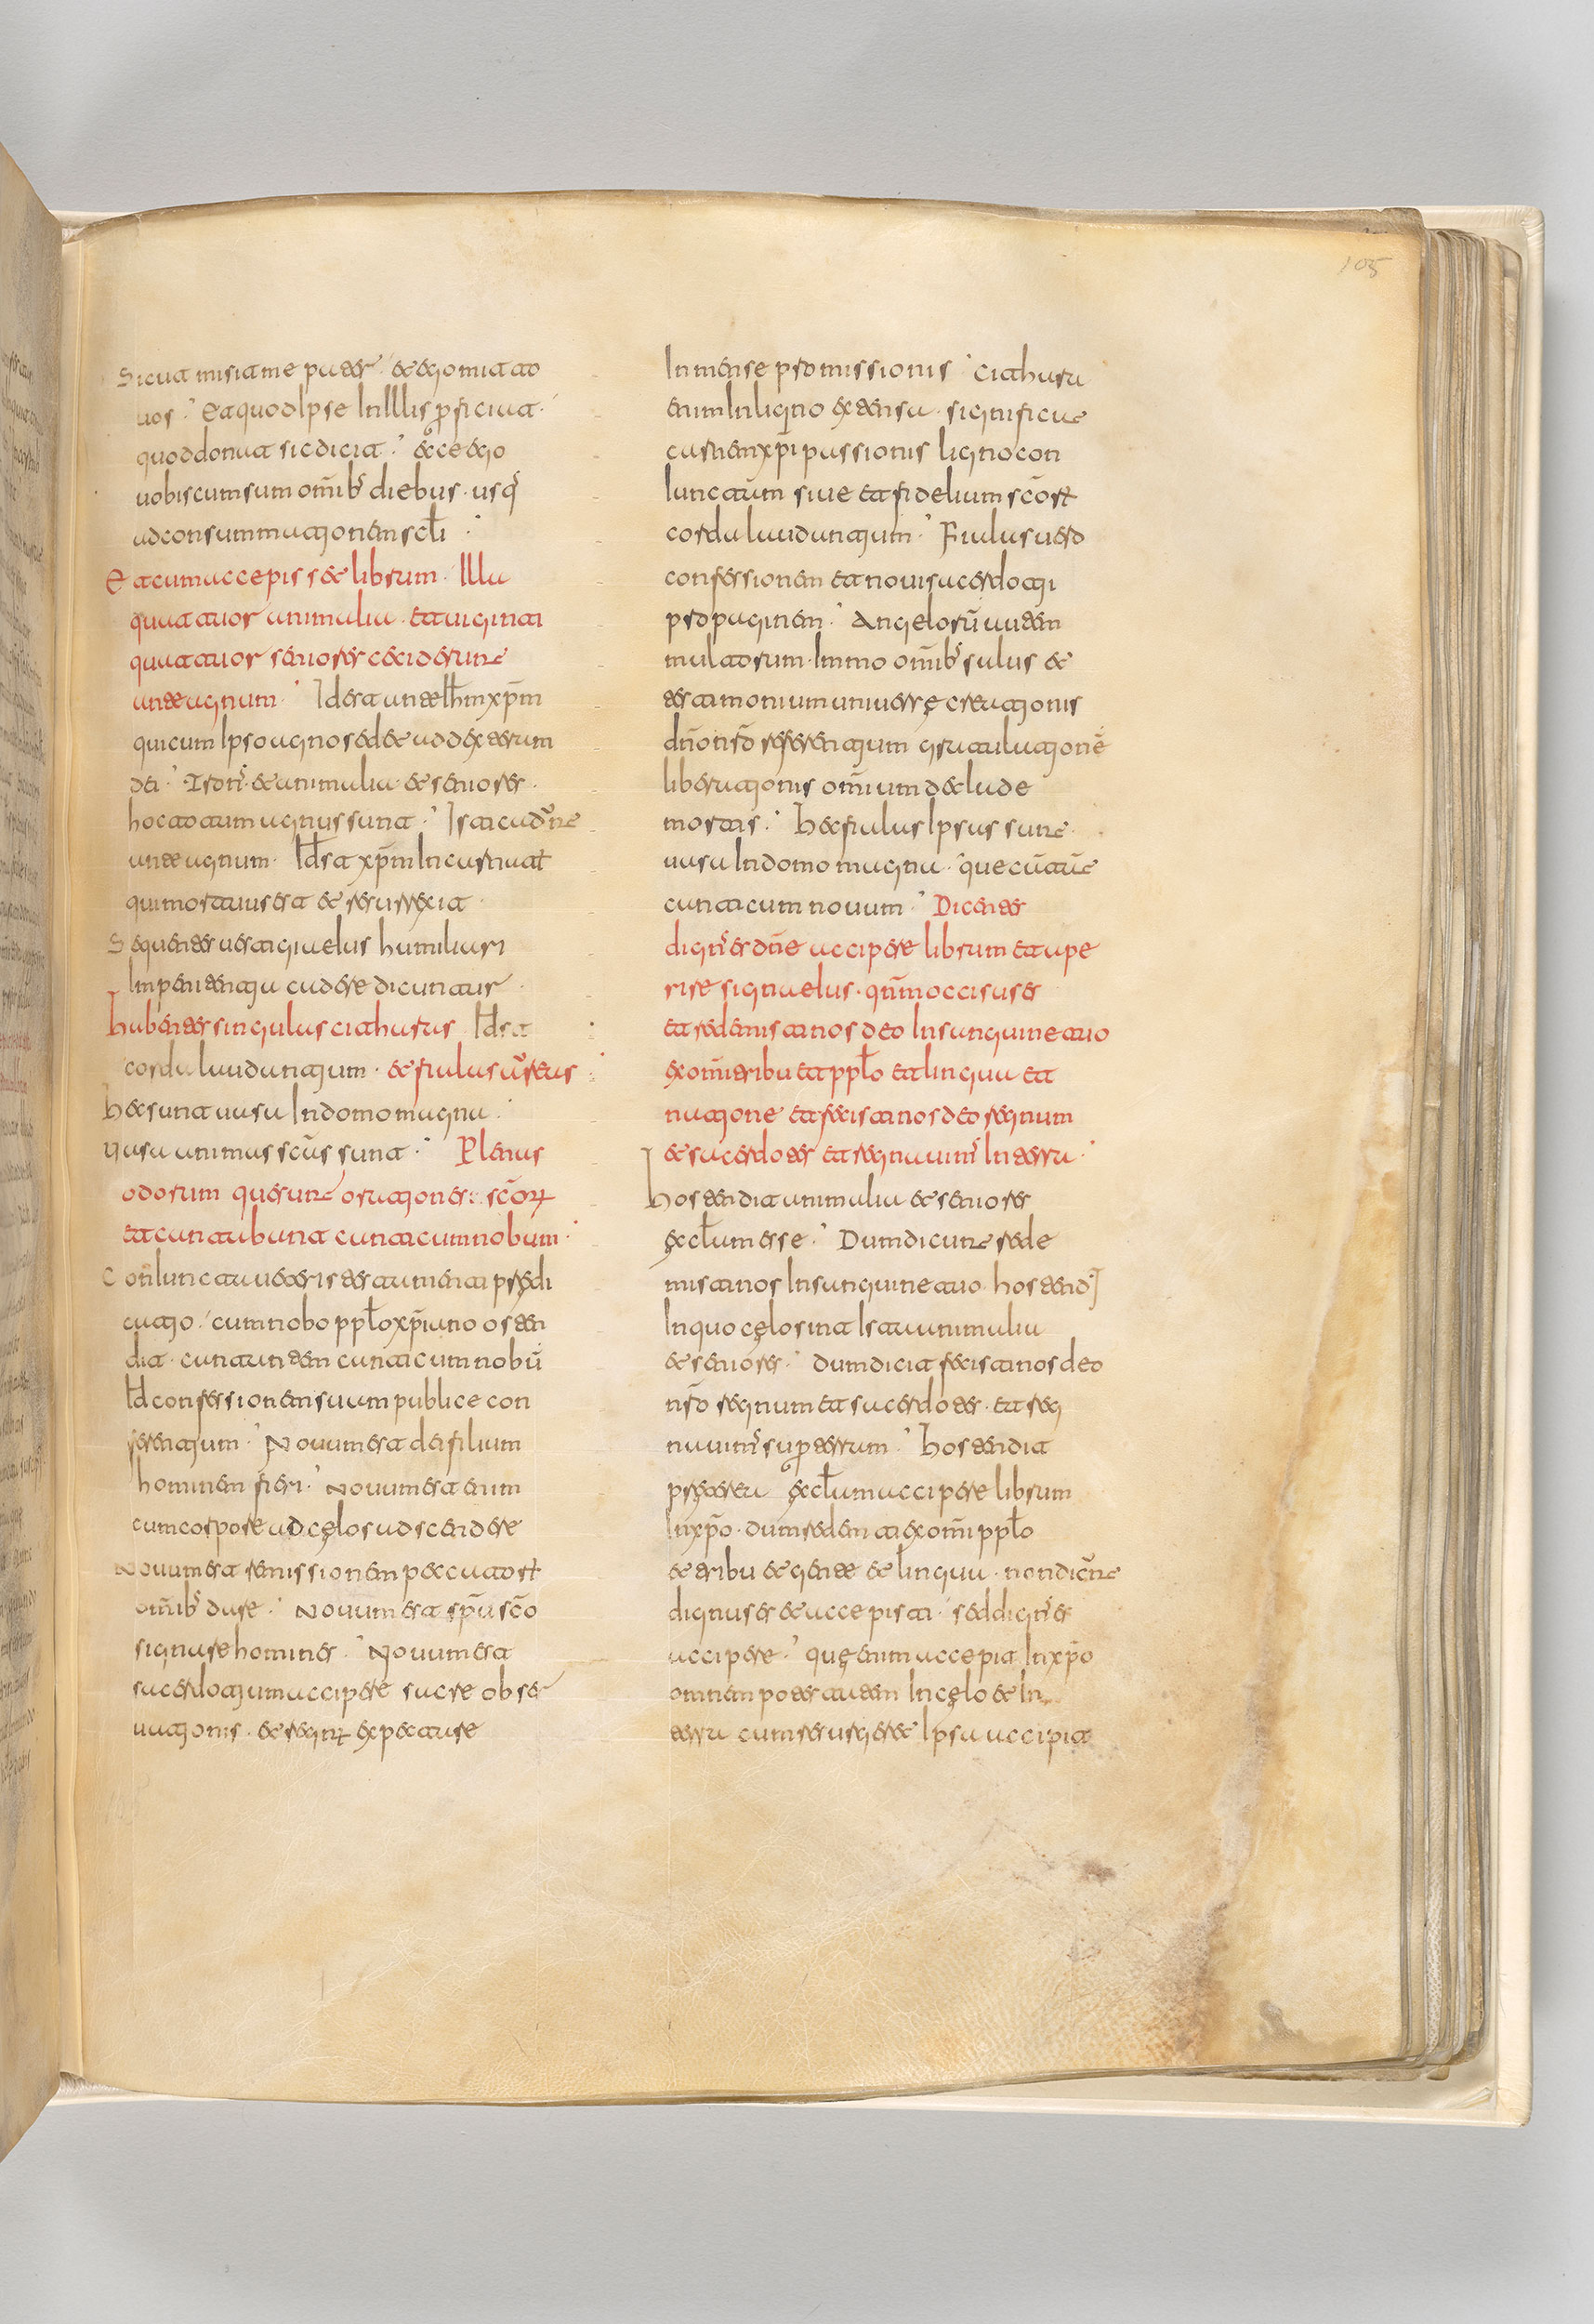 105
Sicut misit me pater · et ego mitto
uos · Et quod ipse in illis proficiat ·
quod donat sic dicit · ecce ego
uobiscum sum om̄ib; diebus · usq;
ad consummationem scł̄i ·
Et cum accepisset librum · illa
quattuor animalia · et uiginti
quattuor seniores ceciderunt
ante agnum · Id est ante łhm xp̄m
qui cum ipso agno sedet ad dexteram
dei · Thron; et animalia et seniores ·
hoc totum agnus sunt · Ist̄i cadunt
ante agnum · Id est xp̄m in eū stvat
qui mortuus est et resurrexit ·
Sequentes uestigia eius humiliari
in penitentia cadere dicuntur ·
habentes singulas citharas Id est
corda laudantium · et fialas aureas
hec sunt uasa in domo magna ·
Uasa animas scās sunt · Plenas
odorum que sunt orationes scōrum
et cantabunt canticum nobum ·
Coniuncta ueteris testamenti predi
catio · cum nobo ppło xp̄iano osten
dit · cantantem canticum nobū
Id confessionem suam publice con
ferentium · Nouum est dei filium
hominem fieri · Nouum est enim
cum corpore ad cęlos adscendere
Nouum est remissionem peccatorum
om̄ib; dare · Nouum est sp̄u scō
signare homines · Nouum est
sacerdotium accipere sacre obser
uationis · et regnum expectare
In mense promissionis · Cithara
enim in ligno extensa · significat
carnem xp̄i passionis ligno con
iunctam siue et fidelium scōrum
corda laudantium · Fialas uero
confessionem et noui sacerdotii
propaginem · Angelorū autem
multorum · immo om̄ib; salus et
testimonium uniuersę creationis
dn̄o nr̄o referentium gratulationē
liberationis om̄ium de clade
mortis · Hec fialas ipsas sunt
uasa in domo magna · que cantant
canticum nouum · Dicentes
dign; es dn̄e accipere librum et ape
rire signa eius · qn̄m occisus es
et redemisti nos deo in sanguine tuo
ex om̄i tribu et ppło et lingua et
natione et fecisti nos deo regnum
et sacerdotes et regnauim; in terra ·
Hos tendit animalia et seniores
ecł̄am esse · Dum dicunt rede
misti nos in sanguine tuo hos tend̄i
in quo cęlos int ista animalia
et seniores · dum dicit fecisti nos deo
nr̄o regnum et sacerdotes · et reg
nauim; super terram · Hos tendit
preterea ecł̄am accipere librum
in xp̄o · dum redempti ex om̄i ppło
et tribu et gente et lingua · non dicunt
dignus es et accepisti · sed dign; es
accipere · quę enim accepit in xp̄o
omnem potestatem in cęlo et in
terra cum resurgeret ipsa accipit